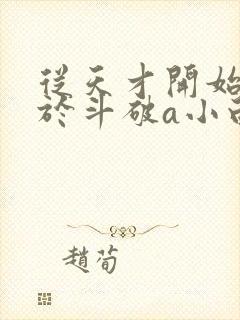 從天才開始
於斗破a小説
趙荀